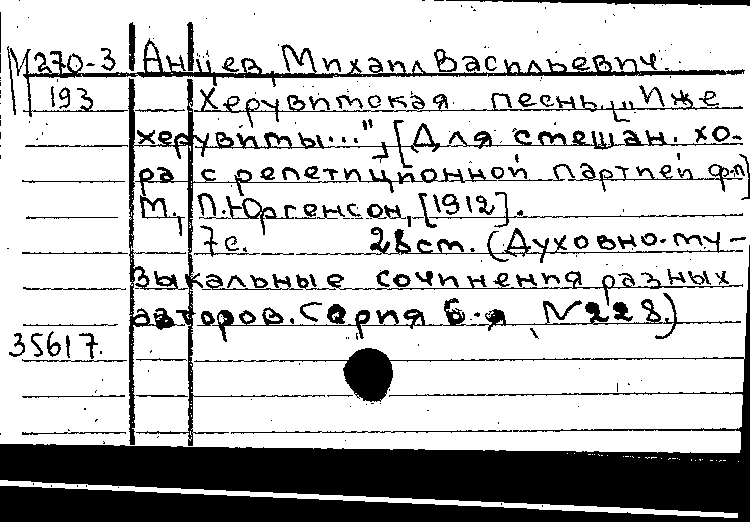 М270-3 Анцев, Михаил Васильевич.
193 Херувимская песнь „Иже
херувимы...", [Для смешан. хо-
ра с репетиционной партией ф-п]
М., П. Юргенсон, [1912].
7с. 28см. (Духовно-му-
зыкальные сочинения разных
авторов. Серия 6-я, N 228.)
35617.